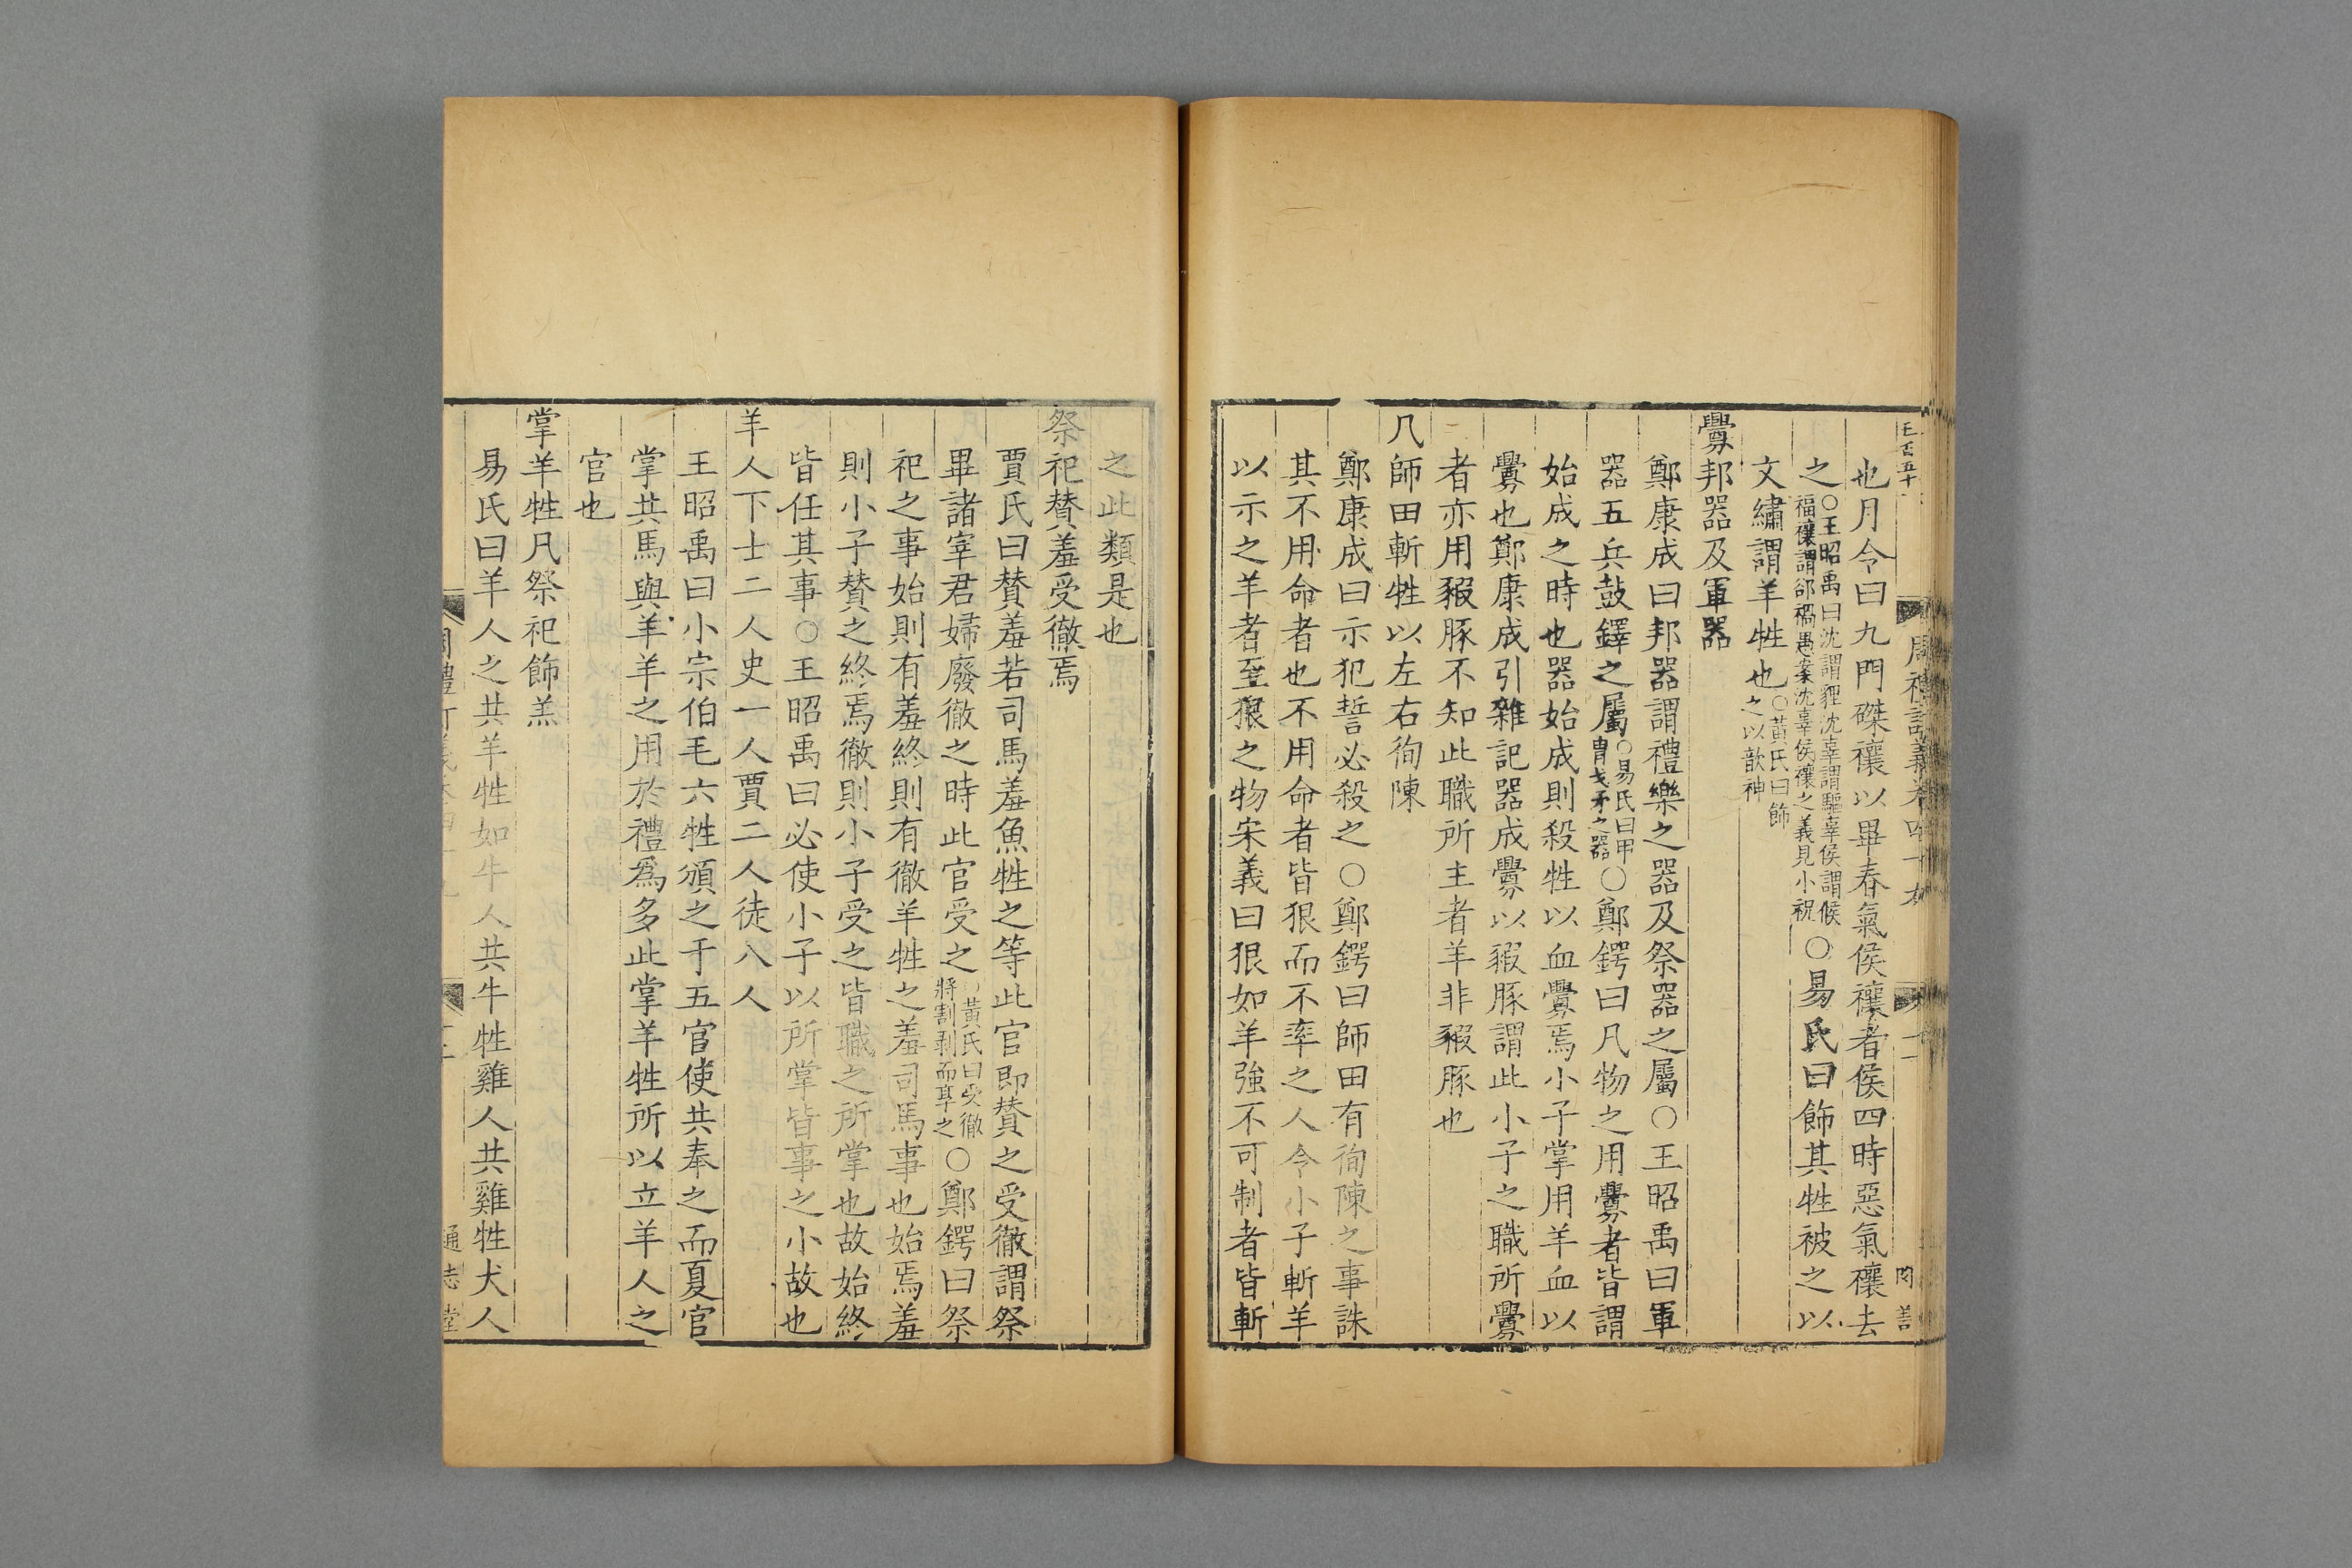 也月令曰九門磔禳以畢春氣侯禳者侯四時惡氣禳去
之○王昭禹曰沈謂貍沈辜謂驅辜侯謂候福禳謂郤禍愚案沈辜侯禳之義見小祝○易氏曰飾其牲被之以
文繡謂羊牲也○黃氏曰飾之以歆神
釁邦器及軍器
鄭康成曰邦器謂禮樂之器及祭器之屬○王昭禹曰軍
器五兵鼓鐸之屬○易氏曰甲冑戈矛之器○鄭鍔曰凡物之用釁者皆謂
始成之時也器始成則殺牲以血釁焉小子掌用羊血以
釁也鄭康成引雜記器成釁以豭豚謂此小子之職所釁
者亦用豭豚不知此職所主者羊非豭豚也
凡師田斬牲以左右徇陳
鄭康成曰示犯誓必殺之○鄭鍔曰師田有徇陳之事誅
其不用命者也不用命者皆狠而不率之人令小子斬羊
以示之羊者至狠之物宋義曰狠如羊強不可制者皆斬
之此類是也
祭祀贊羞受徹焉
賈氏曰贊羞若司馬羞魚牲之等此官即贊之受徹謂祭
畢諸宰君婦廢徹之時此官受之○黃氏曰受徹將割剥而享之○鄭鍔曰祭
祀之事始則有羞終則有徹羊牲之羞司馬事也始焉羞
則小子贊之終焉徹則小子受之皆職之所掌也故始終
皆任其事○王昭禹曰必使小子以所掌皆事之小故也
羊人下士二人史一人賈二人徒八人
王昭禹曰小宗伯毛六牲頒之于五官使共奉之而夏官
掌共馬與羊羊之用於禮爲多此掌羊牲所以立羊人之
官也
掌羊牲凡祭祀飾羔
易氏曰羊人之共羊牲如牛人共牛牲雞人共雞牲犬人
通志堂